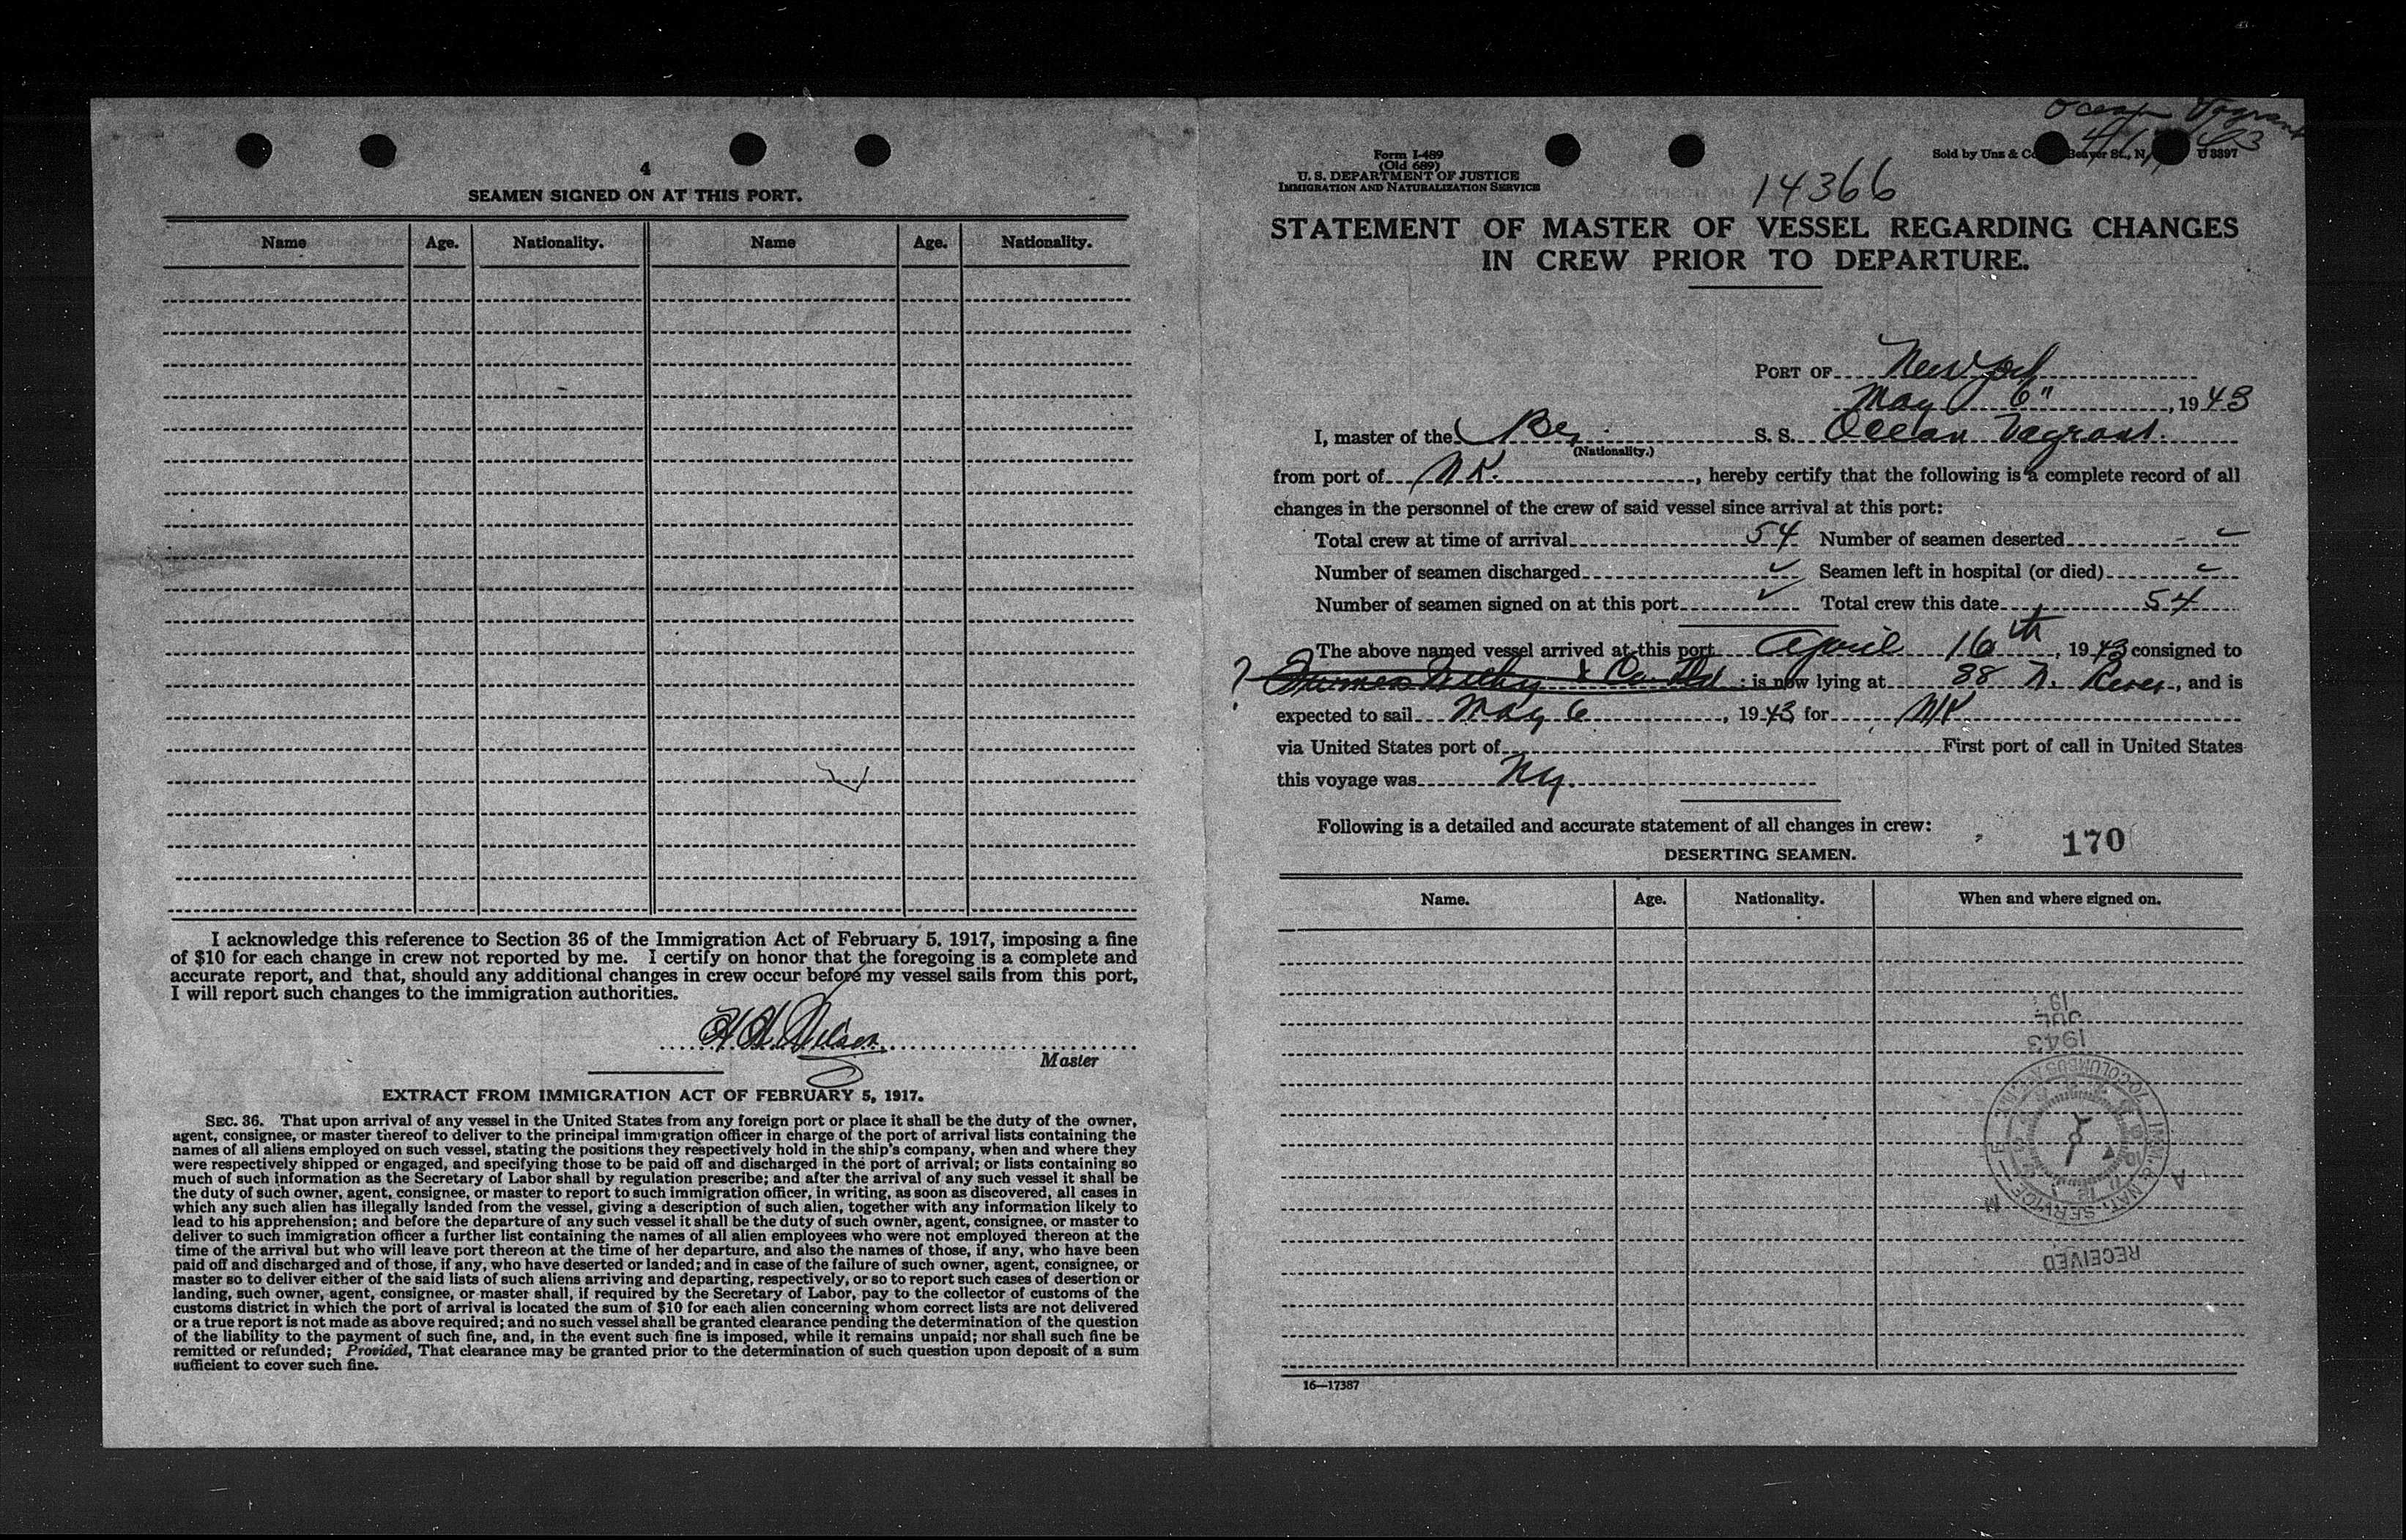 4
SEAMEN SIGNED ON AT THIS PORT.
Name Age. Nationality. Name Age. Nationality.
I acknowledge this reference to Section 36 of the Immigration Act of February 5, 1917, imposing a fine
of $10 for each change in crew not reported by me. I certify on honor that the foregoing is a complete and
accurate report, and that, should any additional changes in crew occur before my vessel sails from this port,
I will report such changes to the immigration authorities.
Master
EXTRACT FROM IMMIGRATION ACT OF FEBRUARY 5, 1917.
SEC. 36. That upon arrival of any vessel in the United States from any foreign port or place it shall be the duty of the owner,
agent, consignee, or master thereof to deliver to the principal immigration officer in charge of the port of arrival lists containing the
names of all aliens employed on such vessel, stating the positions they respectively hold in the ship's company, when and where they
were respectively shipped or engaged, and specifying those to be paid off and discharged in the port of arrival; or lists containing so
much of such information as the Secretary of Labor shall by regulation prescribe; and after the arrival of any such vessel it shall be
the duty of such owner, agent, consignee, or master to report to such immigration officer, in writing, as soon as discovered, all cases in
which any such alien has illegally landed from the vessel, giving a description of such alien, together with any information likely to
lead to his apprehension; and before the departure of any such vessel it shall be the duty of such owner, agent, consignee, or master to
deliver to such immigration officer a further list containing the names of all alien employees who were not employed thereon at the
time of the arrival but who will leave port thereon at the time of her departure, and also the names of those, if any, who have been
paid off and discharged and of those, if any, who have deserted or landed; and in case of the failure of such owner, agent, consignee, or
master so to deliver either of the said lists of such aliens arriving and departing, respectively, or so to report such cases of desertion or
landing, such owner, agent, consignee, or master shall, if required by the Secretary of Labor, pay to the collector of customs of the
customs district in which the port of arrival is located the sum of $10 for each alien concerning whom correct lists are not delivered
or a true report is not made as above required; and no such vessel shall be granted clearance pending the determination of the question
of the liability to the payment of such fine, and, in the event such fine is imposed, while it remains unpaid; nor shall such fine be
remitted or refunded; Provided, That clearance may be granted prior to the determination of such question upon deposit of a sum
sufficient to cover such fine.
Ocean Vagrant
Form I-489
(Old 689)
U. S. DEPARTMENT OF JUSTICE
IMMIGRATION AND NATURALIZATION SERVICE
Sold by Unz & Co Beaver St., N. U 8397
14366
STATEMENT OF MASTER OF VESSEL REGARDING CHANGES
IN CREW PRIOR TO DEPARTURE.
PORT OF New York
May 6", 1943
I, master of the Br. S. S. Ocean Vagrant.
(Nationality.)
from port of N K., hereby certify that the following is a complete record of all
changes in the personnel of the crew of said vessel since arrival at this port:
Total crew at time of arrival 54 Number of seamen deserted
Number of seamen discharged Seamen left in hospital (or died)
Number of seamen signed on at this port Total crew this date 54
The above named vessel arrived at this port April 16th, 1943 consigned to
? Furness Withy & Co. Ltd ; is now lying at 88 N. River, and is
expected to sail May 6, 1943 for N/K
via United States port of First port of call in United States
this voyage was Ny.
Following is a detailed and accurate statement of all changes in crew:
170
DESERTING SEAMEN.
Name. Age. Nationality. When and where signed on.
1943
JUL
19
IMM. & NAT. SERVICE
RECEIVED
16—17387